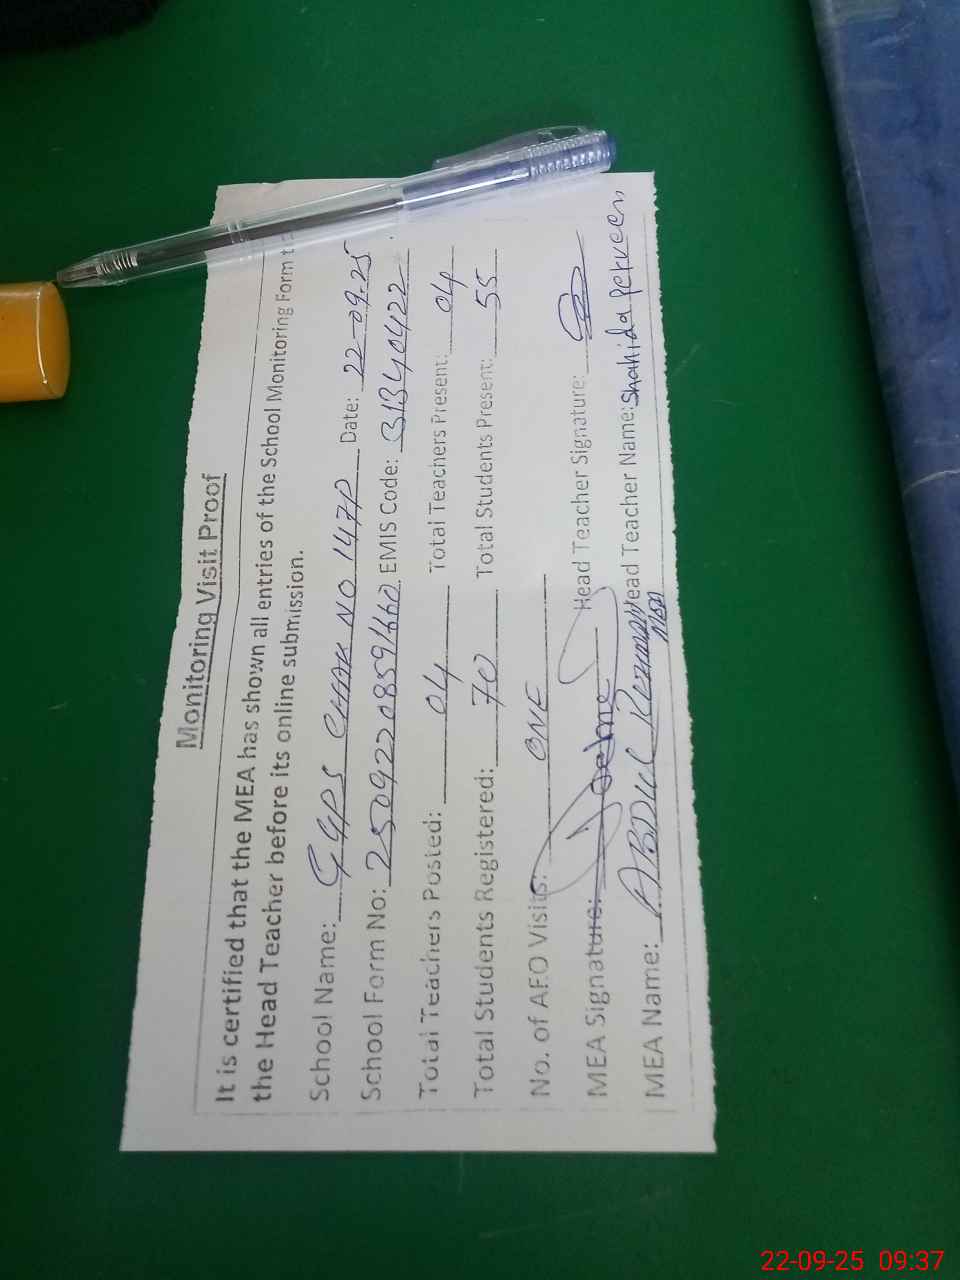 Monitoring Visit Proof
It is certified that the MEA has shown all entries of the School Monitoring Form t
the Head Teacher before its online submission.
School Name: GGPS CHAK NO 147P Date: 22-09-25
School Form No: 25092208591660 EMIS Code: 31340422
Total Teachers Posted: 04 Total Teachers Present: 04
Total Students Registered: 70 Total Students Present: 55
No. of AEO Visits: ONE
MEA Signature: Head Teacher Signature:
MEA Name: ABDUL REHMAN Head Teacher Name: Shahida Perveen
MEA
22-09-25 09:37